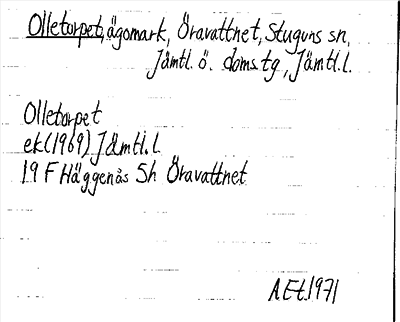 Olletorpet, ägomark, Öravattnet, Stuguns sn,
Jämtl. ö. doms.tg, Jämtl. l.
Olletorpet
ek (1969) Jämtl. l.
19 F Häggenås 5h Öravattnet
A Et 1971